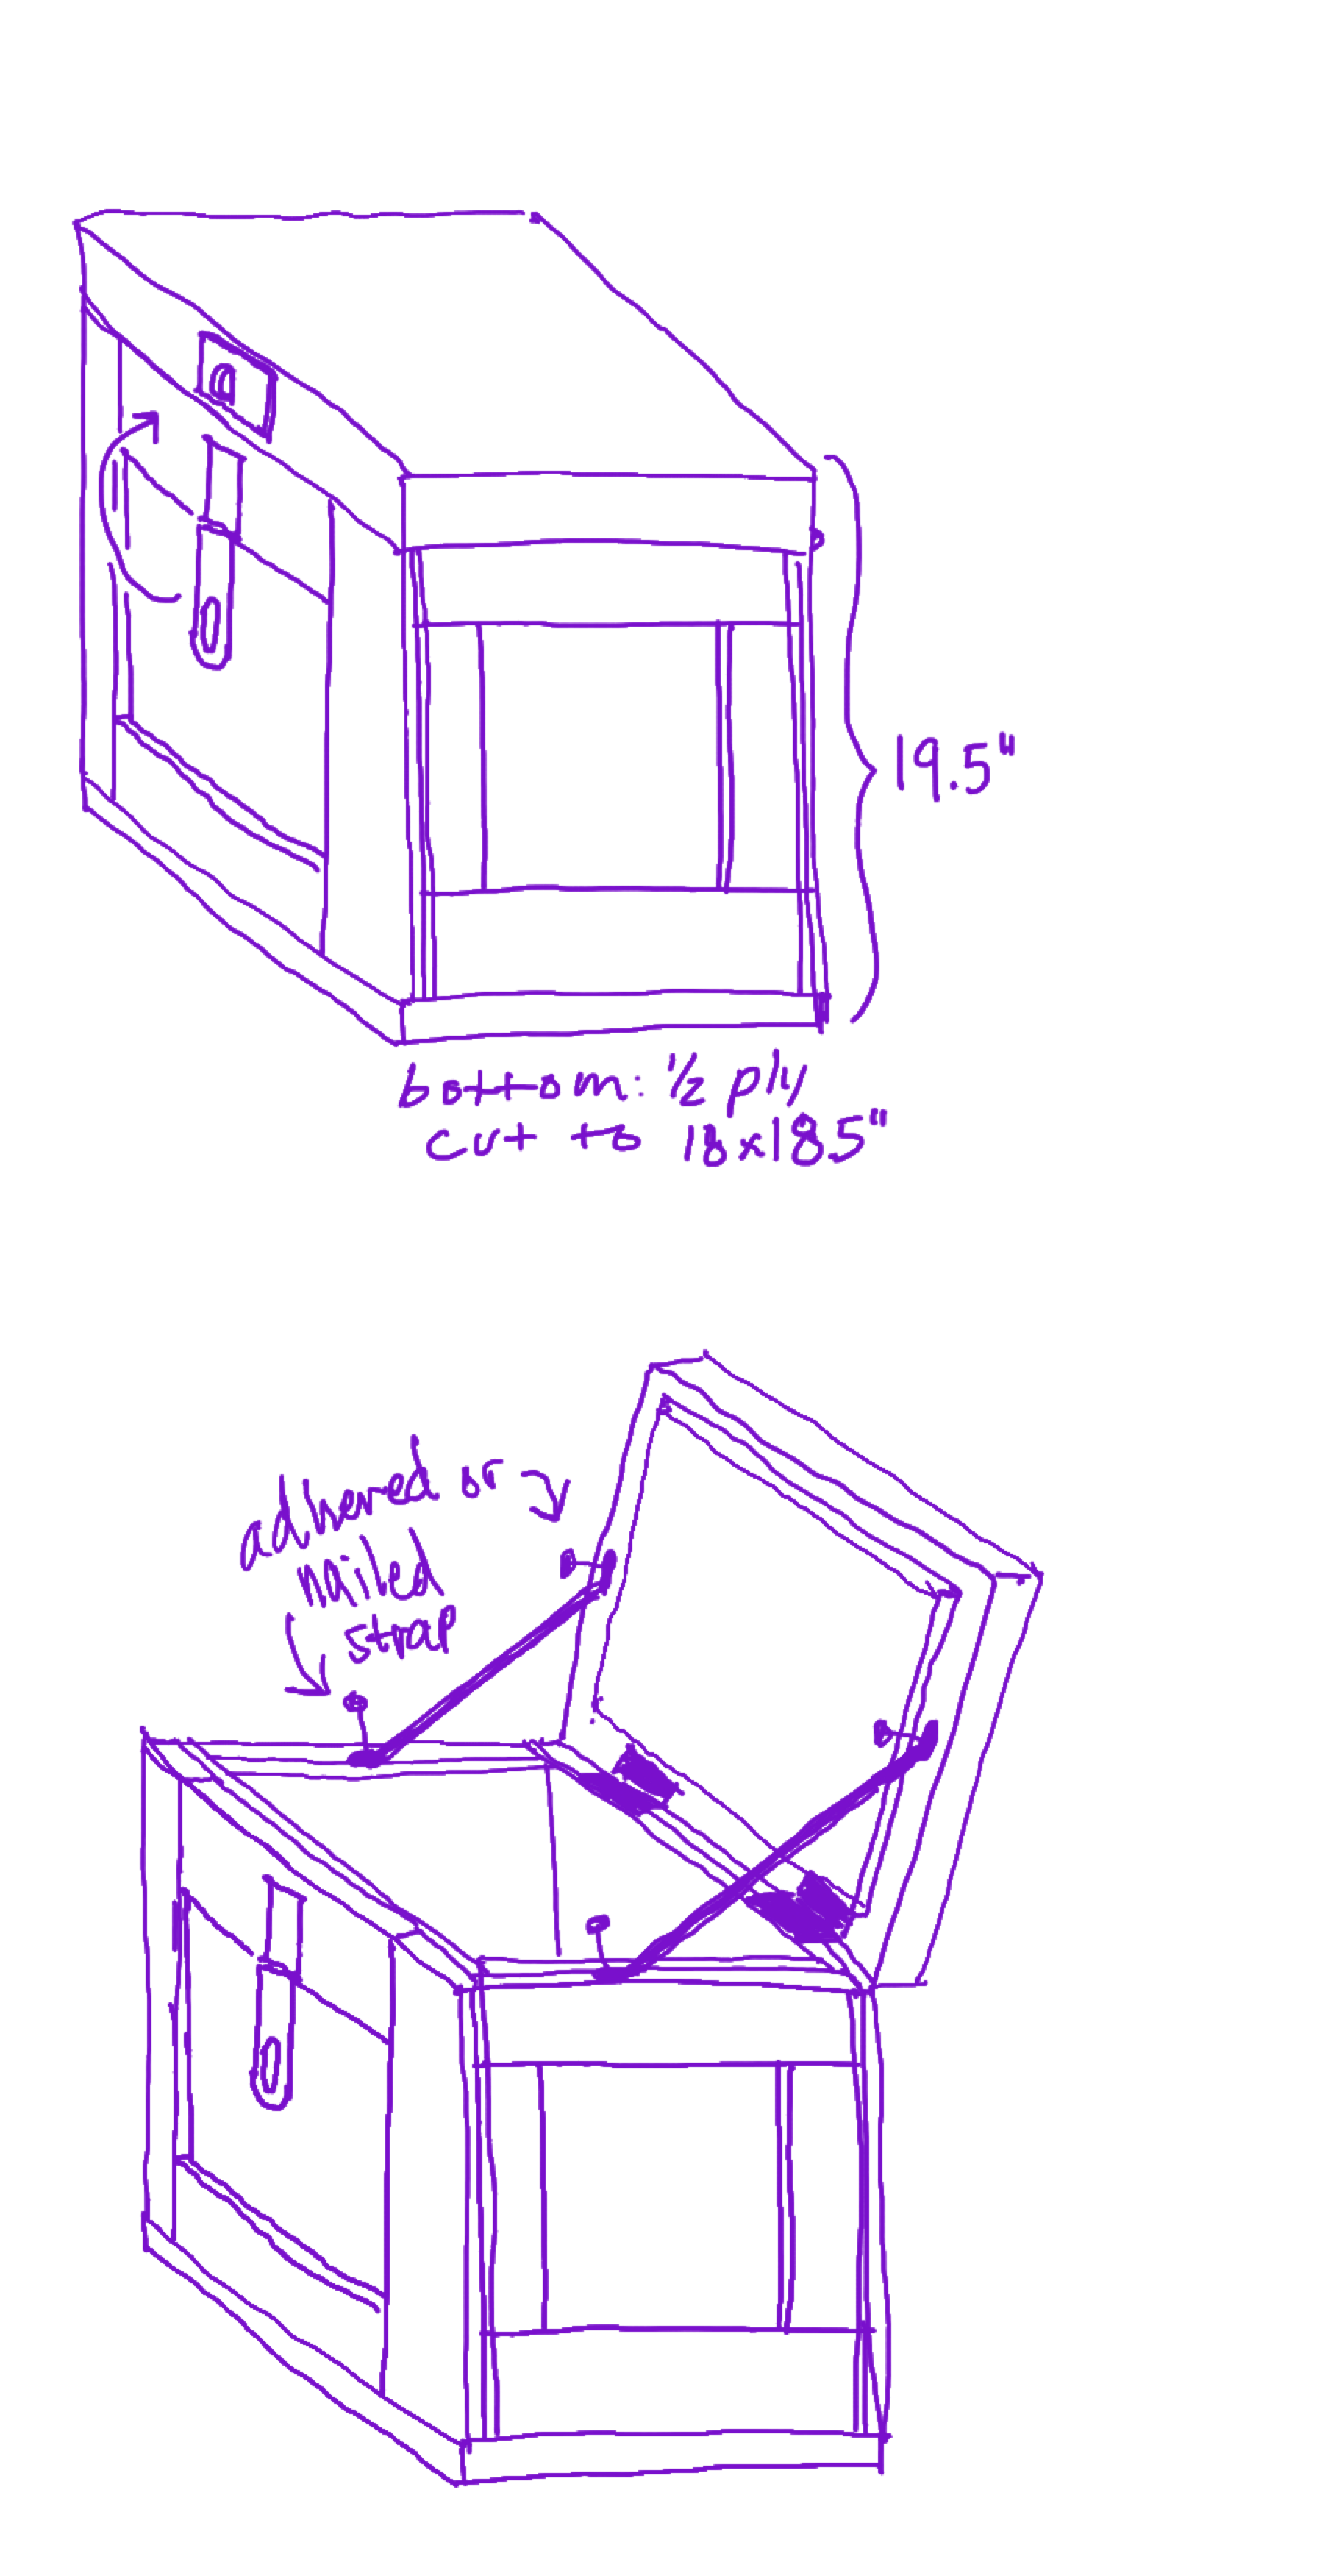 19.5"
bottom: ½ ply
cut to 18x18.5"
adhered or
nailed
strap